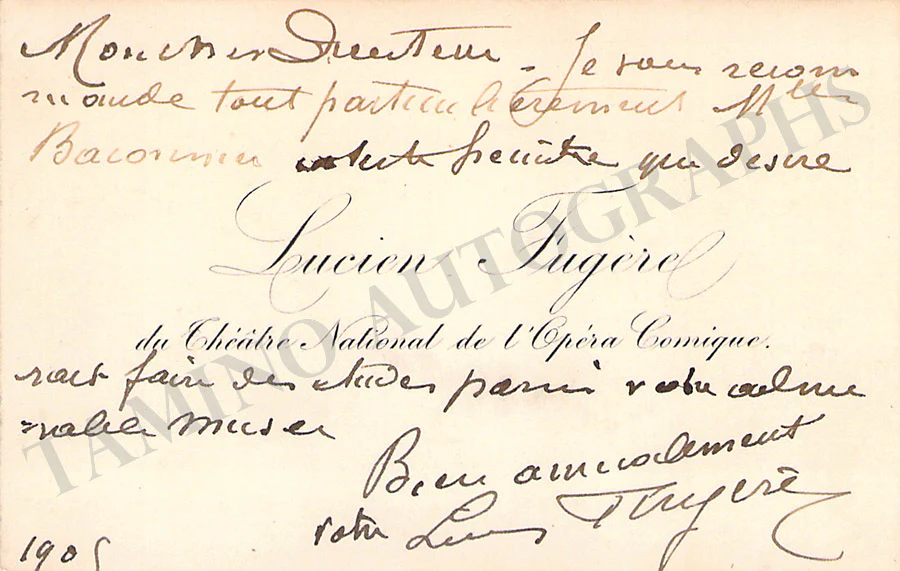 Mon cher Directeur - Je vous recom
mande tout particulièrement Mlle
Baconnier artiste peintre qui desire
Lucien Fugère
du Théâtre National de l'Opéra Comique.
rait faire des études parmi votre admi
=rable musée
Bien amicalement
votre Lucien Fugère
1905
TAMINO AUTOGRAPHS